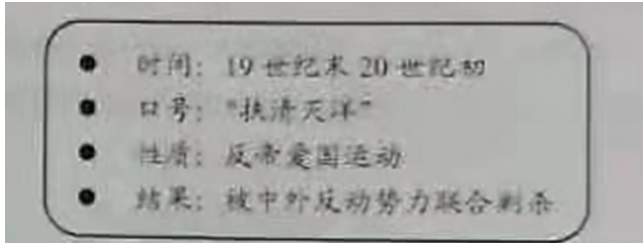 ● 时间：19 世纪末 20 世纪初
● 口号：“扶清灭洋”
● 性质：反帝爱国运动
● 结果：被中外反动势力联合剿杀